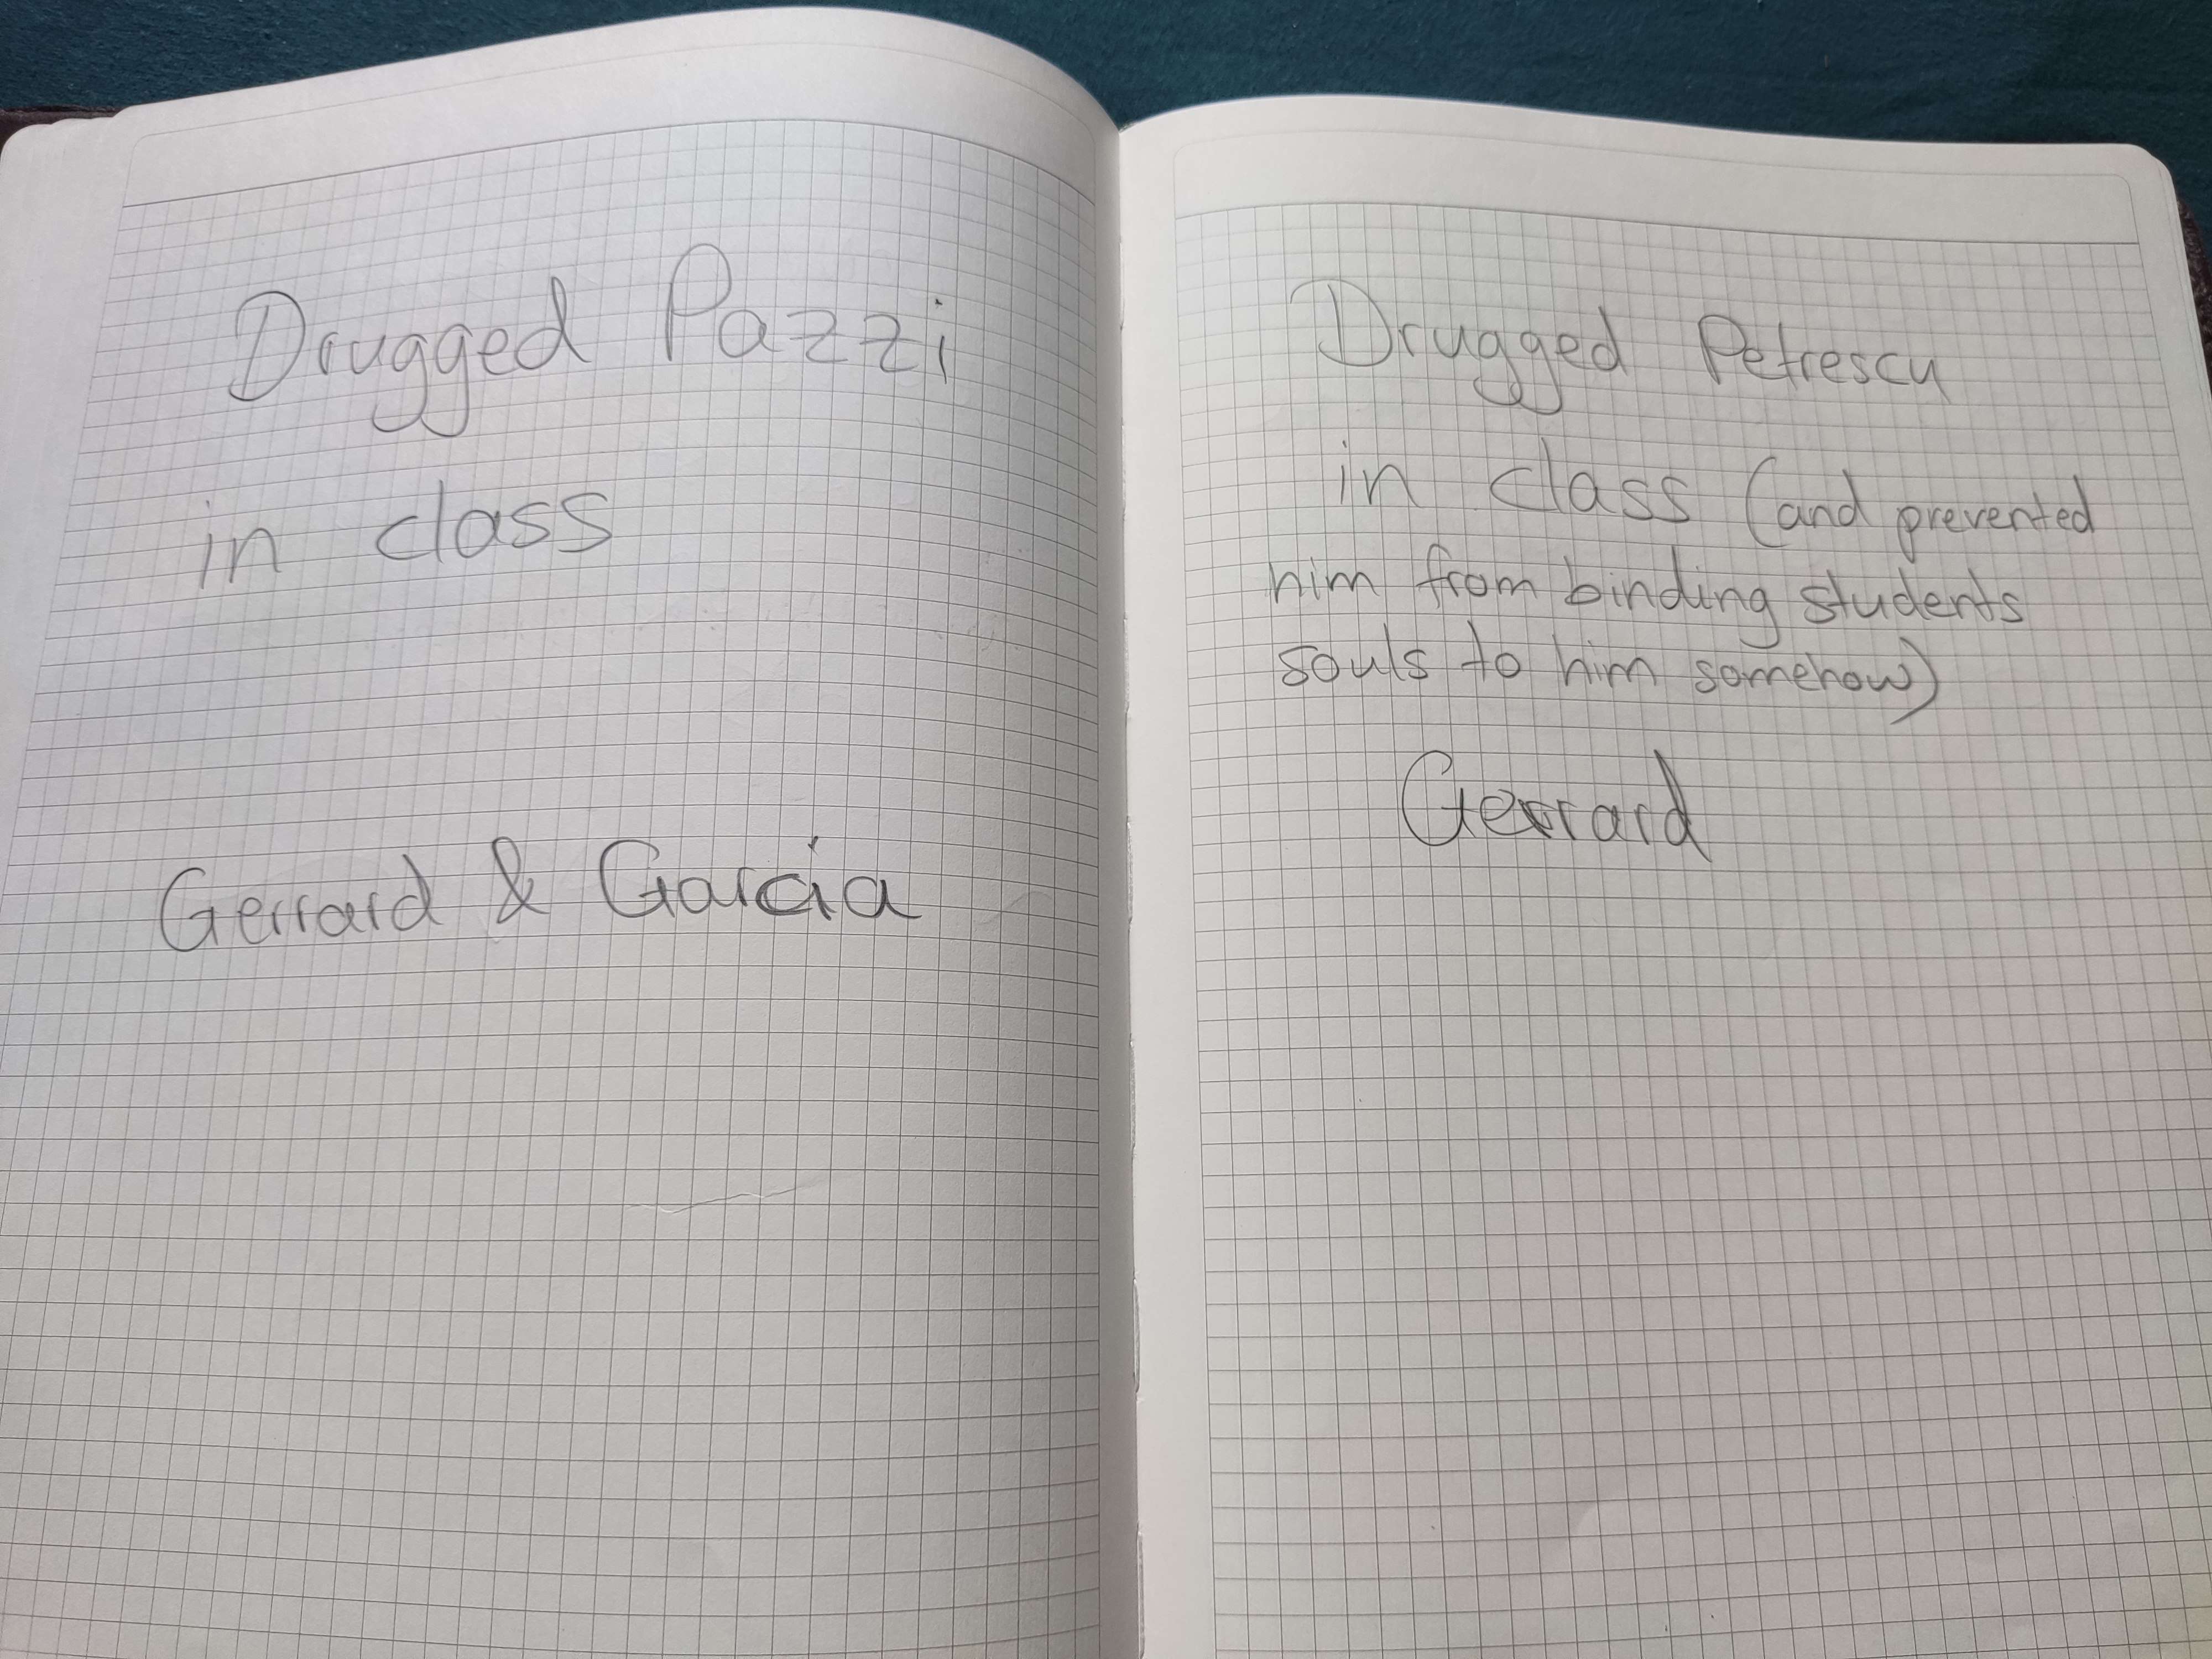 Drugged Pazzi
in class
Gerrard & Garcia
Drugged Petrescu
in class (and prevented
him from binding students
souls to him somehow)
Gerrard